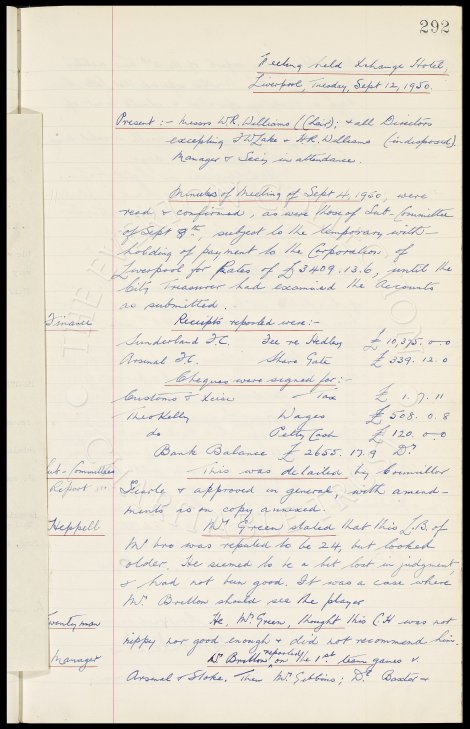 292
Meeting held Xchange Hotel,
Liverpool, Tuesday, Sept 12, 1950.
Present :- Messrs W.R. Williams (Chair); & all Directors
excepting T.W. Lake & H.R. Williams (indisposed)
Manager & Secy in attendance.
Minutes of Meeting of Sept 4, 1950, were
read & confirmed, as were those of Sub-Committee
of Sept 8th, subject to the temporary with-
holding of payment to the Corporation of
Liverpool for Rates of £3409.13.6, until the
City Treasurer had examined the Accounts
as submitted.
Finance
Receipts reported were:-
Sunderland F.C. Fee re Hedley £ 10,375. 0-0
Arsenal F.C. Share Gate £ 339. 12. 0
Cheques were signed for:-
Customs & Xcise Tax £ 1. 7. 11
Theo Kelly Wages £ 508. 0. 8
do Petty Cash £ 120. 0-0
Bank Balance £ 2655. 17. 9 Dr
Sub-Committees This was detailed by Councillor
Report Searle & approved in general, with amend-
ments as on copy annexed.
Heppell Mr Green stated that this L.B. of
was reputed to be 24, but looked
older. He seemed to be a bit lost in judgment,
& had not been good. It was a case where
Mr Britton should see the player
Twentyman He, Mr Green, thought this CH was not
nippy nor good enough & did not recommend him.
Manager Mr Britton reported on the 1st team games v.
Arsenal & Stoke. Then Mr Gibbins; Dr Baxter &